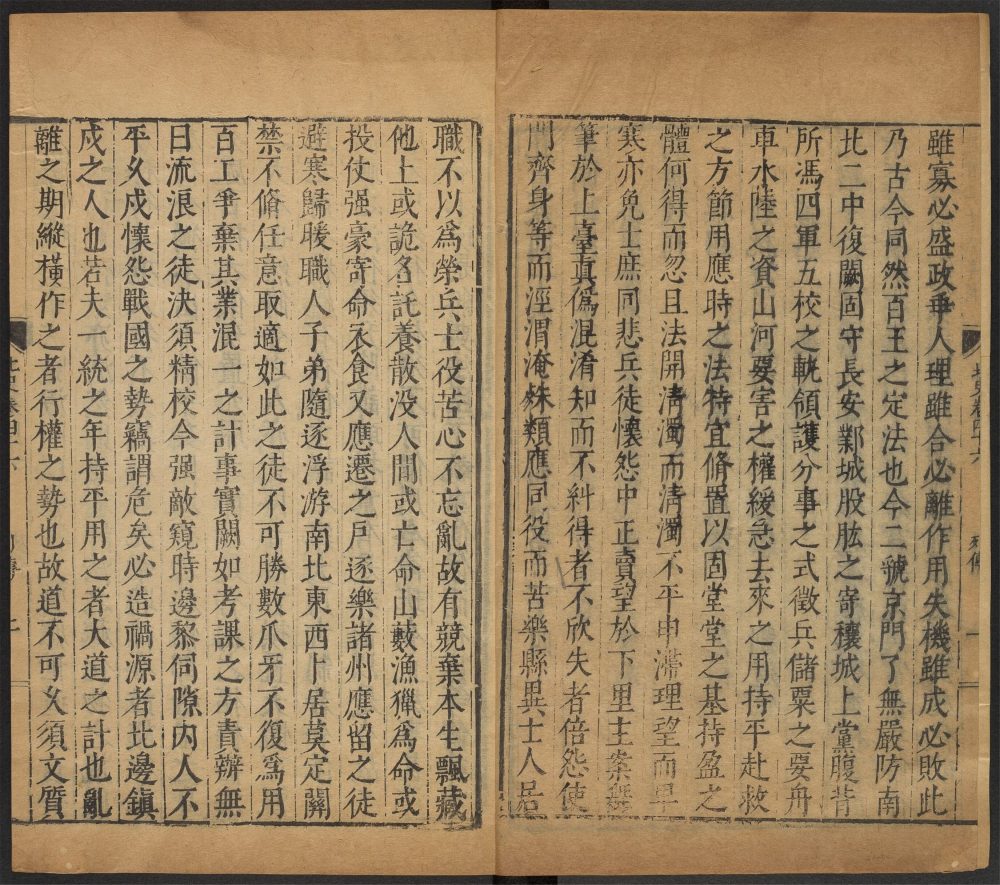 雖寡必盛政乖人理雖合必離作用失機雖成必敗此
乃古今同然百王之定法也今二虢京門了無嚴防南
北二中復闕固守長安鄴城股肱之寄穰城上黨腹背
所馮四軍五校之軌領護分事之式徵兵儲粟之要舟
車水陸之資山河要害之權緩急去來之用持平赴救
之方節用應時之法特宜脩置以固堂堂之基持盈之
體何得而忽且法開清濁而清濁不平申滯理望而卑
寒亦免士庶同悲兵徒懷怨中正賣望於下里主案舞
筆於上臺真偽混淆知而不糾得者不欣失者倍怨使
門齊身等而涇渭淹殊類應同役而苦樂縣異士人居
職不以爲榮兵士役苦心不忘亂故有競棄本生飄藏
他土或詭名託養散没人間或亡命山藪漁獵爲命或
投仗强豪寄命衣食又應遷之戸逐樂諸州應留之徒
避寒歸暖職人子弟隨逐浮游南北東西卜居莫定關
禁不脩任意取適如此之徒不可勝數爪牙不復爲用
百工爭棄其業混一之計事實闕如考課之方責辦無
日流浪之徒決須精校今强敵窺時邊黎伺隙内人不
平久戍懷怨戰國之勢竊謂危矣必造禍源者北邊鎭
戍之人也若夫一統之年持平用之者大道之計也亂
離之期縱橫作之者行權之勢也故道不可久須文質